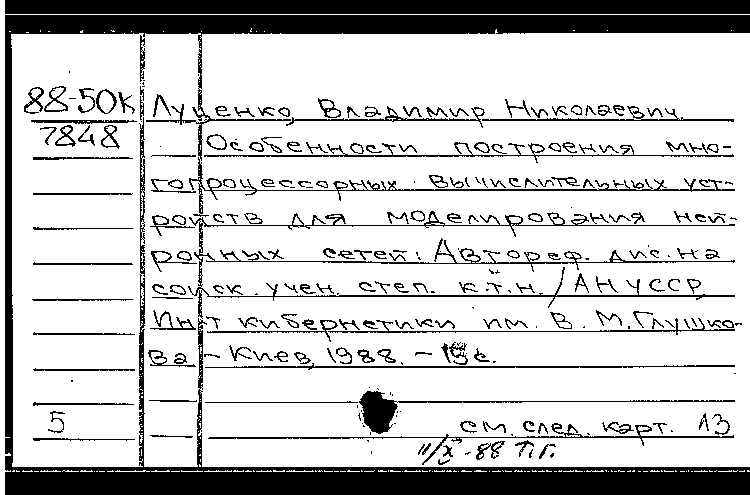 88-50К Луценко, Владимир Николаевич.
7848 Особенности построения мно-
гопроцессорных вычислительных уст-
ройств для моделирования ней-
ронных сетей: Автореф. дис. на
соиск. учен. степ. к.т.н. / АН УССР
Ин-т кибернетики им. В. М. Глушко-
ва - Киев, 1988. -
5 см. след. карт. 13
11/X-88 П.Г.